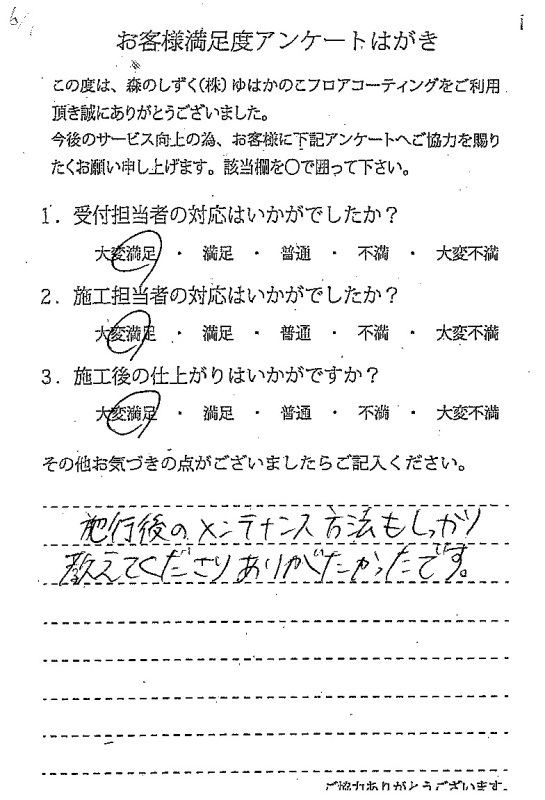 6/1
お客様満足度アンケートはがき
この度は、森のしずく(株)ゆはかのこフロアコーティングをご利用
頂き誠にありがとうございました。
今後のサービス向上の為、お客様に下記アンケートへご協力を賜り
たくお願い申し上げます。該当欄を〇で囲って下さい。
1．受付担当者の対応はいかがでしたか？
大変満足 ・ 満足 ・ 普通 ・ 不満 ・ 大変不満
2．施工担当者の対応はいかがでしたか？
大変満足 ・ 満足 ・ 普通 ・ 不満 ・ 大変不満
3．施工後の仕上がりはいかがですか？
大変満足 ・ 満足 ・ 普通 ・ 不満 ・ 大変不満
その他お気づきの点がございましたらご記入ください。
施行後のメンテナンス方法もしっかり
教えてくださりありがたかったです。
ご協力ありがとうございます。